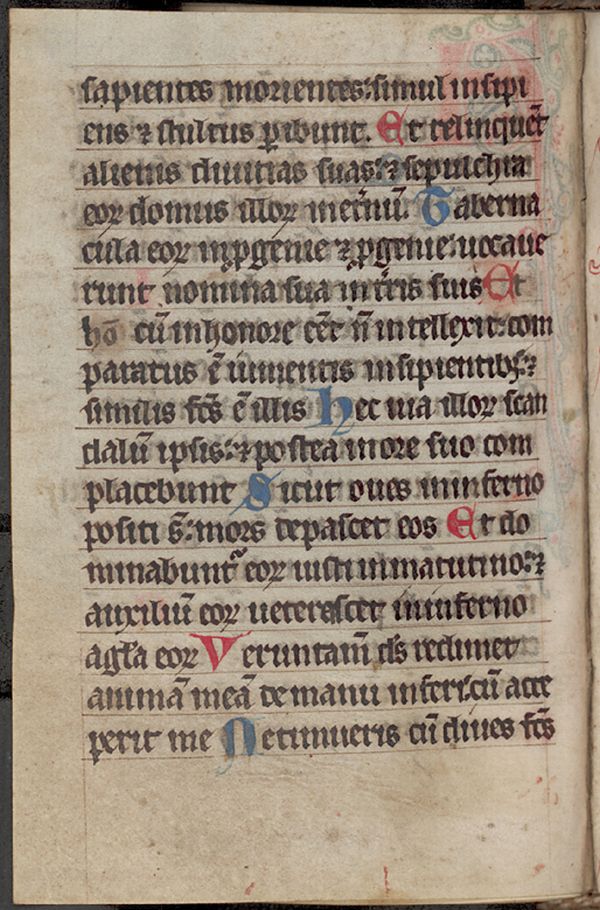 sapientes morientes: simul insipi
ens ⁊ stultus ꝑibunt. Et relinquēt
alienis diuitias suas: ⁊ sepulchra
eoꝝ domus illoꝝ in et̄nū. Taberna
cula eoꝝ in ꝓgenie ⁊ ꝓgenie: uocaue
runt nomina sua in t̄ris suis Et
hō cū in honore eēt nō intellexit: com
paratus ē iumentis insipientibꝫ: ⁊
similis fc̄s ē illis Hec uia illoꝝ scan
dalū ipsis: ⁊ postea in ore suo com
placebunt Sicut oues in inferno
positi s̄: mors depascet eos Et do
minabunt᷑ eoꝝ iusti in matutino: ⁊
auxiliū eoꝝ ueterescet in inferno
a gl̄a eoꝝ Veruntam̄ ds̄ redimet
animā meā de manu inferi: cū acce
perit me Ne timueris cū diues fc̄s